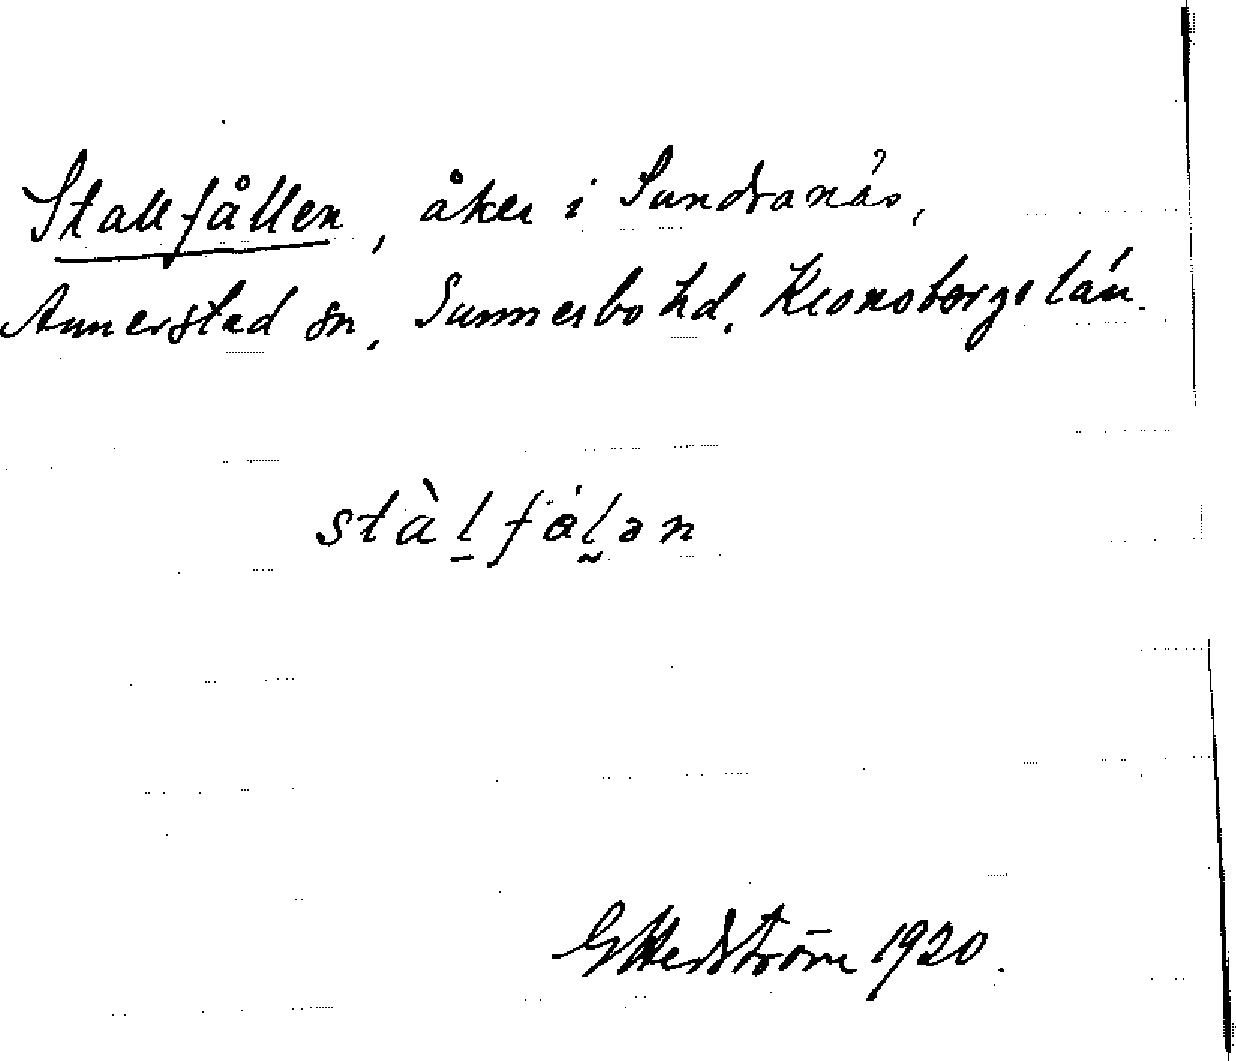 Stallfållen, åker i Sundranäs,
Annerstad sn, Sunnerbo hd, Kronobergs län.
stàl̠fål̰ən
G Hedström 1920.